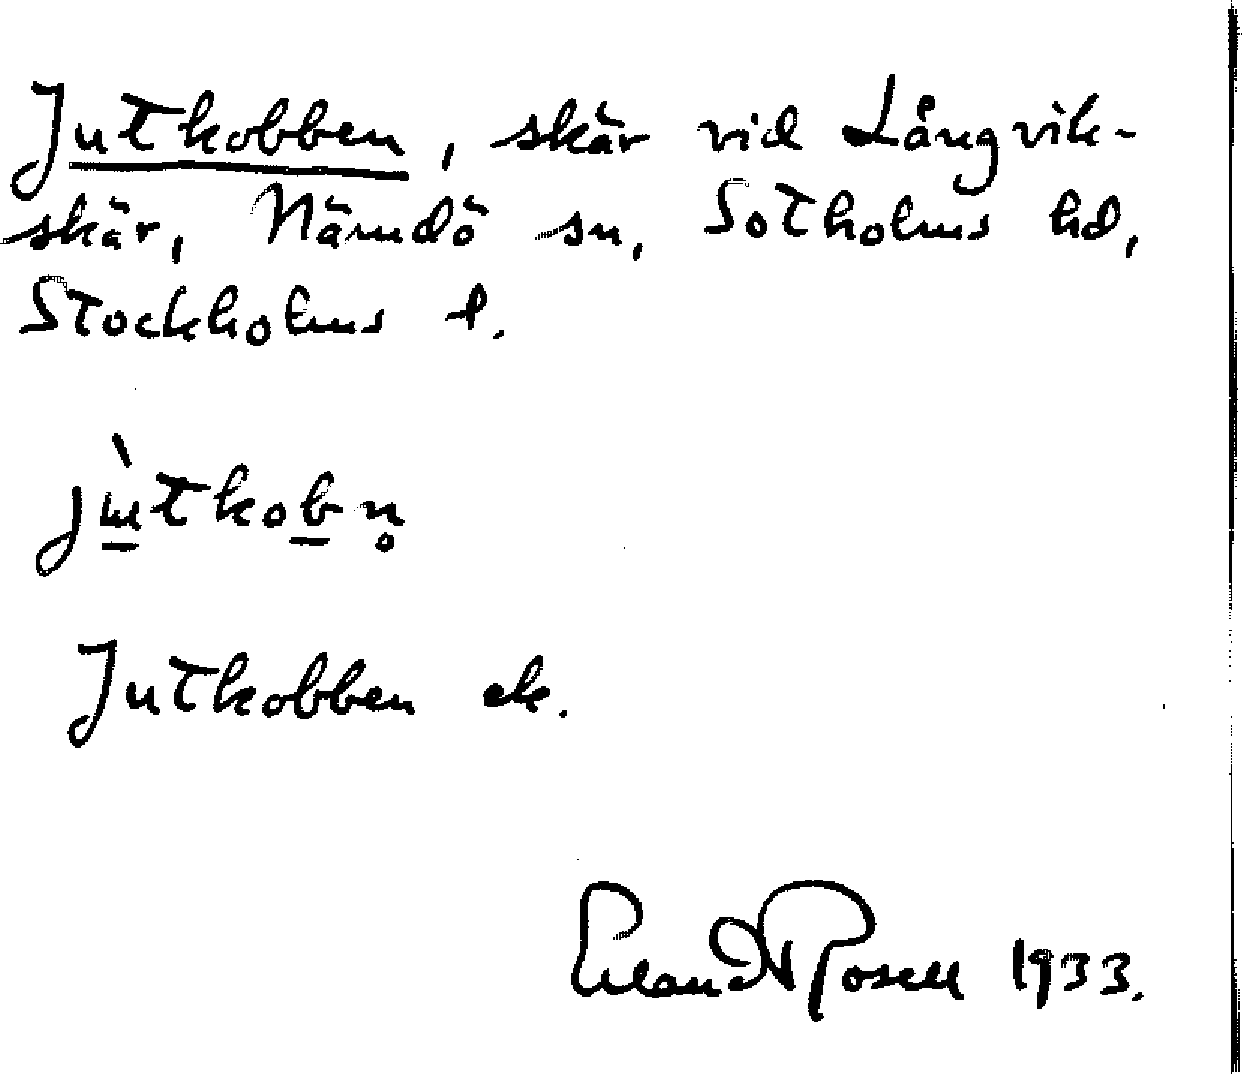 Jutkobben, skär vid Långvik-
skär, Nämdö sn, Sotholms hd,
Stockholms l.
jùtkobn̥
Jutkobben ek.
Erland Rosell 1933.